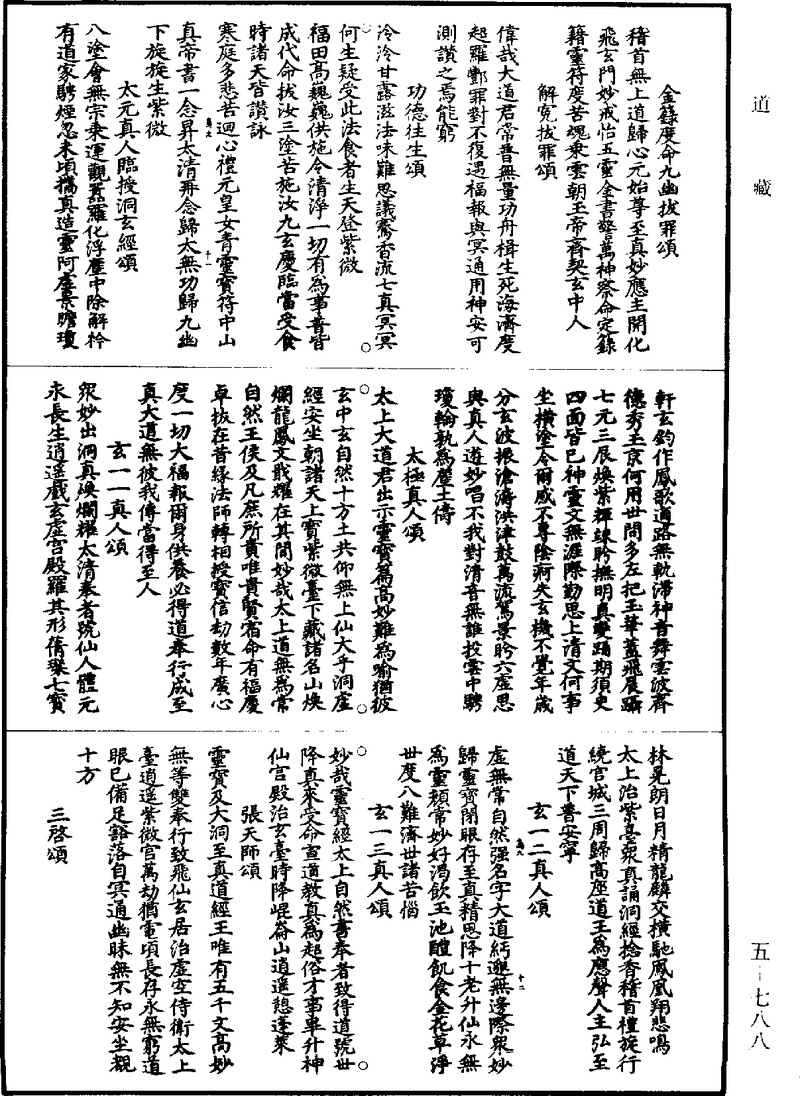 道藏
金籙度命九幽拔罪頌
稽首無上道歸心元始尊至真妙應主開化
飛玄門妙戒怡五靈金書警萬神察命定錄
籍靈符度苦魂乘雲朝玉帝齊契玄中人
解冤拔罪頌
偉哉大道君常普無量功舟楫生死海濟度
超羅酆罪對不復遇福報與冥通用神安可
測讚之焉能窮
功德往生頌
泠泠甘露滋法味難思議騫香流七真冥冥
何生疑受此法食者生天登紫微
福田高巍巍供施令清淨一切有為事普皆
成代命拔汝三塗苦施汝九玄慶臨當受食
時諸天皆讚詠
寒庭多悲苦迴心禮元皇女青靈寶符中山
真帝書一念昇太清再念歸太無功歸九幽
下旋旋生紫微
太元真人臨授洞玄經頌
八塗會無宗乘運觀囂羅化浮塵中際解衿
有道家騁煙忽未頃攜真造靈阿虛景瞻瓊
軒玄鈞作鳳歌適路無軌滯神音舞雲波齊
德秀玉京何用世間多左把玉華蓋飛晨躡
七元三辰煥紫輝竦眄撫明真變踊期須史
四面皆已神靈文無涯際勤思上清文何事
坐橫塗令爾感不專陰痾失玄機不覺年歲
分玄波振滄濤洪津鼓萬流駕景眄六虛思
與真人遊妙唱不我對清音無誰投雲中騁
瓊輪孰為塵土儔
太極真人頌
太上大道君出示靈寶篇高妙難為喻猶彼
玄中玄自然十方土共仰無上仙大乎洞虛
經安坐朝諸天上寶紫微臺下藏諸名山煥
爛龍鳳文戢耀在其間妙哉太上道無為常
自然王侯及凡庶所貴唯貴賢宿命有福慶
卓拔在昔緣法師轉相授寶信劫數年廣心
度一切大福報爾身供養必得道奉行成至
真大道無彼我傳當得至人
玄一一真人頌
眾妙出洞真煥爛耀太清奉者號仙人體元
永長生逍遙戲玄虛宮殿羅其形蒨璨七寶
林晃朗日月精龍麟交橫馳鳳凰翔悲鳴
太上治紫亭眾真誦洞經捻香稽首禮旋行
繞宮城三周歸高座道王為應聲人主弘至
道天下普安寧
玄一二真人頌
虛無常自然強名字大道紆邈無邊際眾妙
歸靈寶閉眼存至真精思降十老升仙永無
為靈賴常妙好渴飲玉池醴飢食金花草淨
世度八難濟世諸苦惱
玄一三真人頌
妙哉靈寶經太上自然書奉者致得道號世
降真來受命宣道教真為超俗才事畢升神
仙宮殿治玄臺時降崐崙山逍遙憩蓬萊
張天師頌
靈寶及大洞至真道經王唯有五千文高妙
無等雙奉行致飛仙玄居治虛空侍衛太上
臺逍遙紫微宮萬劫猶電頃長存永無窮道
眼已備足豁落自冥通幽昧無不知安坐觀
十方
三啓頌
五─七八八